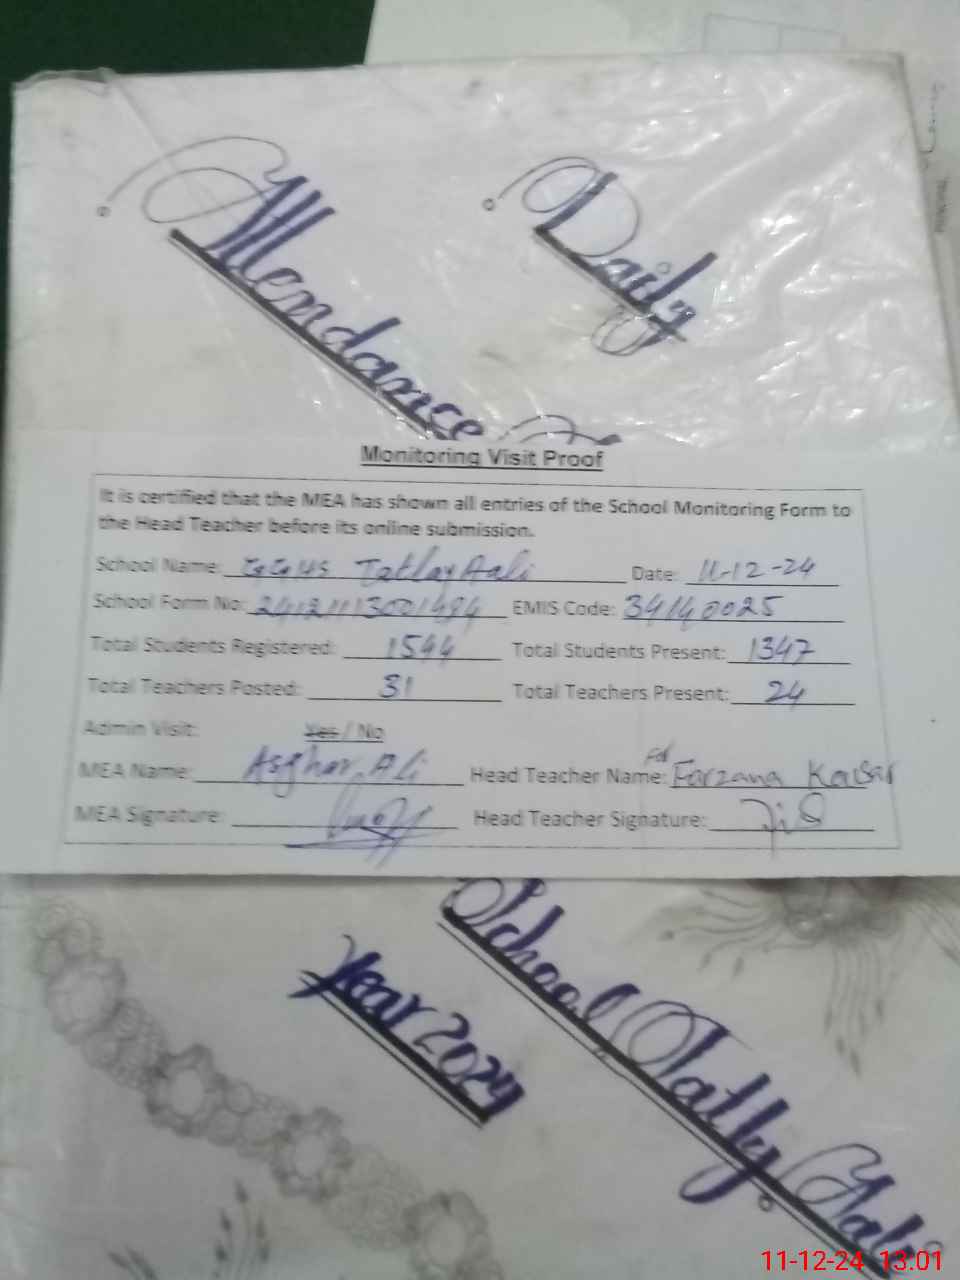 Daily
Attendance
Monitoring Visit Proof
It is certified that the MEA has shown all entries of the School Monitoring Form to
the Head Teacher before its online submission.
School Name: GGHS Tatlay Aali Date: 11-12-24
School Form No: 24121113001484 EMIS Code: 34140025
Total Students Registered: 1544 Total Students Present: 1347
Total Teachers Posted: 31 Total Teachers Present: 24
Admin Visit: Yes / No
MEA Name: Asghar Ali Head Teacher Name: Farzana Kausar
MEA Signature: Head Teacher Signature:
School Tatly Aali
Year 2024
11-12-24 13:01